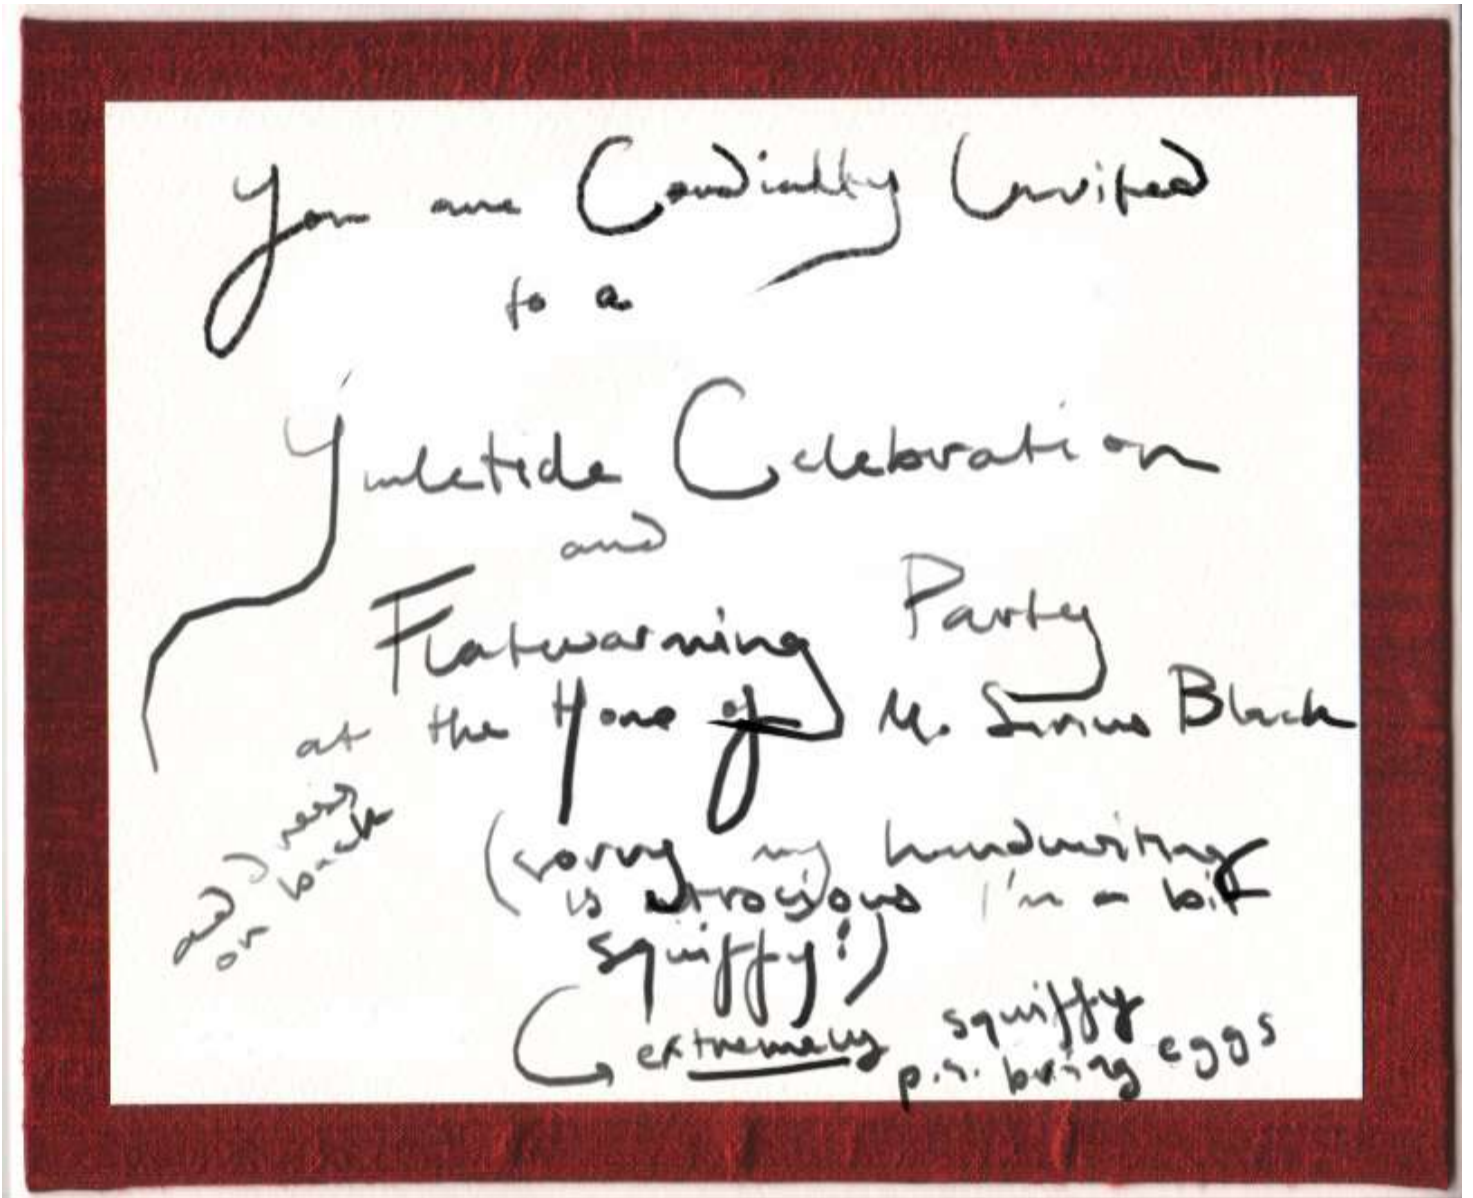 You are Cordially Invited
to a
Yuletide Celebration
and
Flatwarming Party
at the Home of M. Sirius Black
on back
(sorry my handwriting
is atrocious I'm a bit
squiffy!)
extremely squiffy
p.s. bring eggs